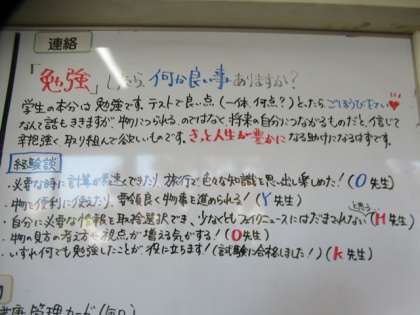 連絡
「勉強」したら、何か良い事ありますか?
学生の本分は勉強です。テストで良い点(一体、何点?)をとったら、ごほうび下さい♥
なんて話もききますが、物につられるのではなく将来の自分につながるものだと、信じて
辛抱強く取り組んで欲しいものです。きっと人生が豊かになる助けになるはずです。
経験談
・必要な時に計算が最速でできたり、旅行で色々な知識を思い出し楽しめた!(O先生)
・物を便利に使えたり、要領良く物事を進められる!(Y先生)
・自分に必要な情報を取捨選択でき、少なくともフェイクニュースにはだまされないと思う…(H先生)
・物の見方や考え方、視点が増える気がする!(O先生)
・いずれ何でも勉強したことが役に立ちます!(試験に合格しました!)(K先生)
管理カード(毎日)